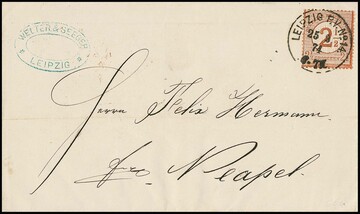 WELTER & SEEGER
LEIPZIG
LEIPZIG P.V. No 14
25 3
74
2 1/2
Herrn Felix Hermann
Neapel.